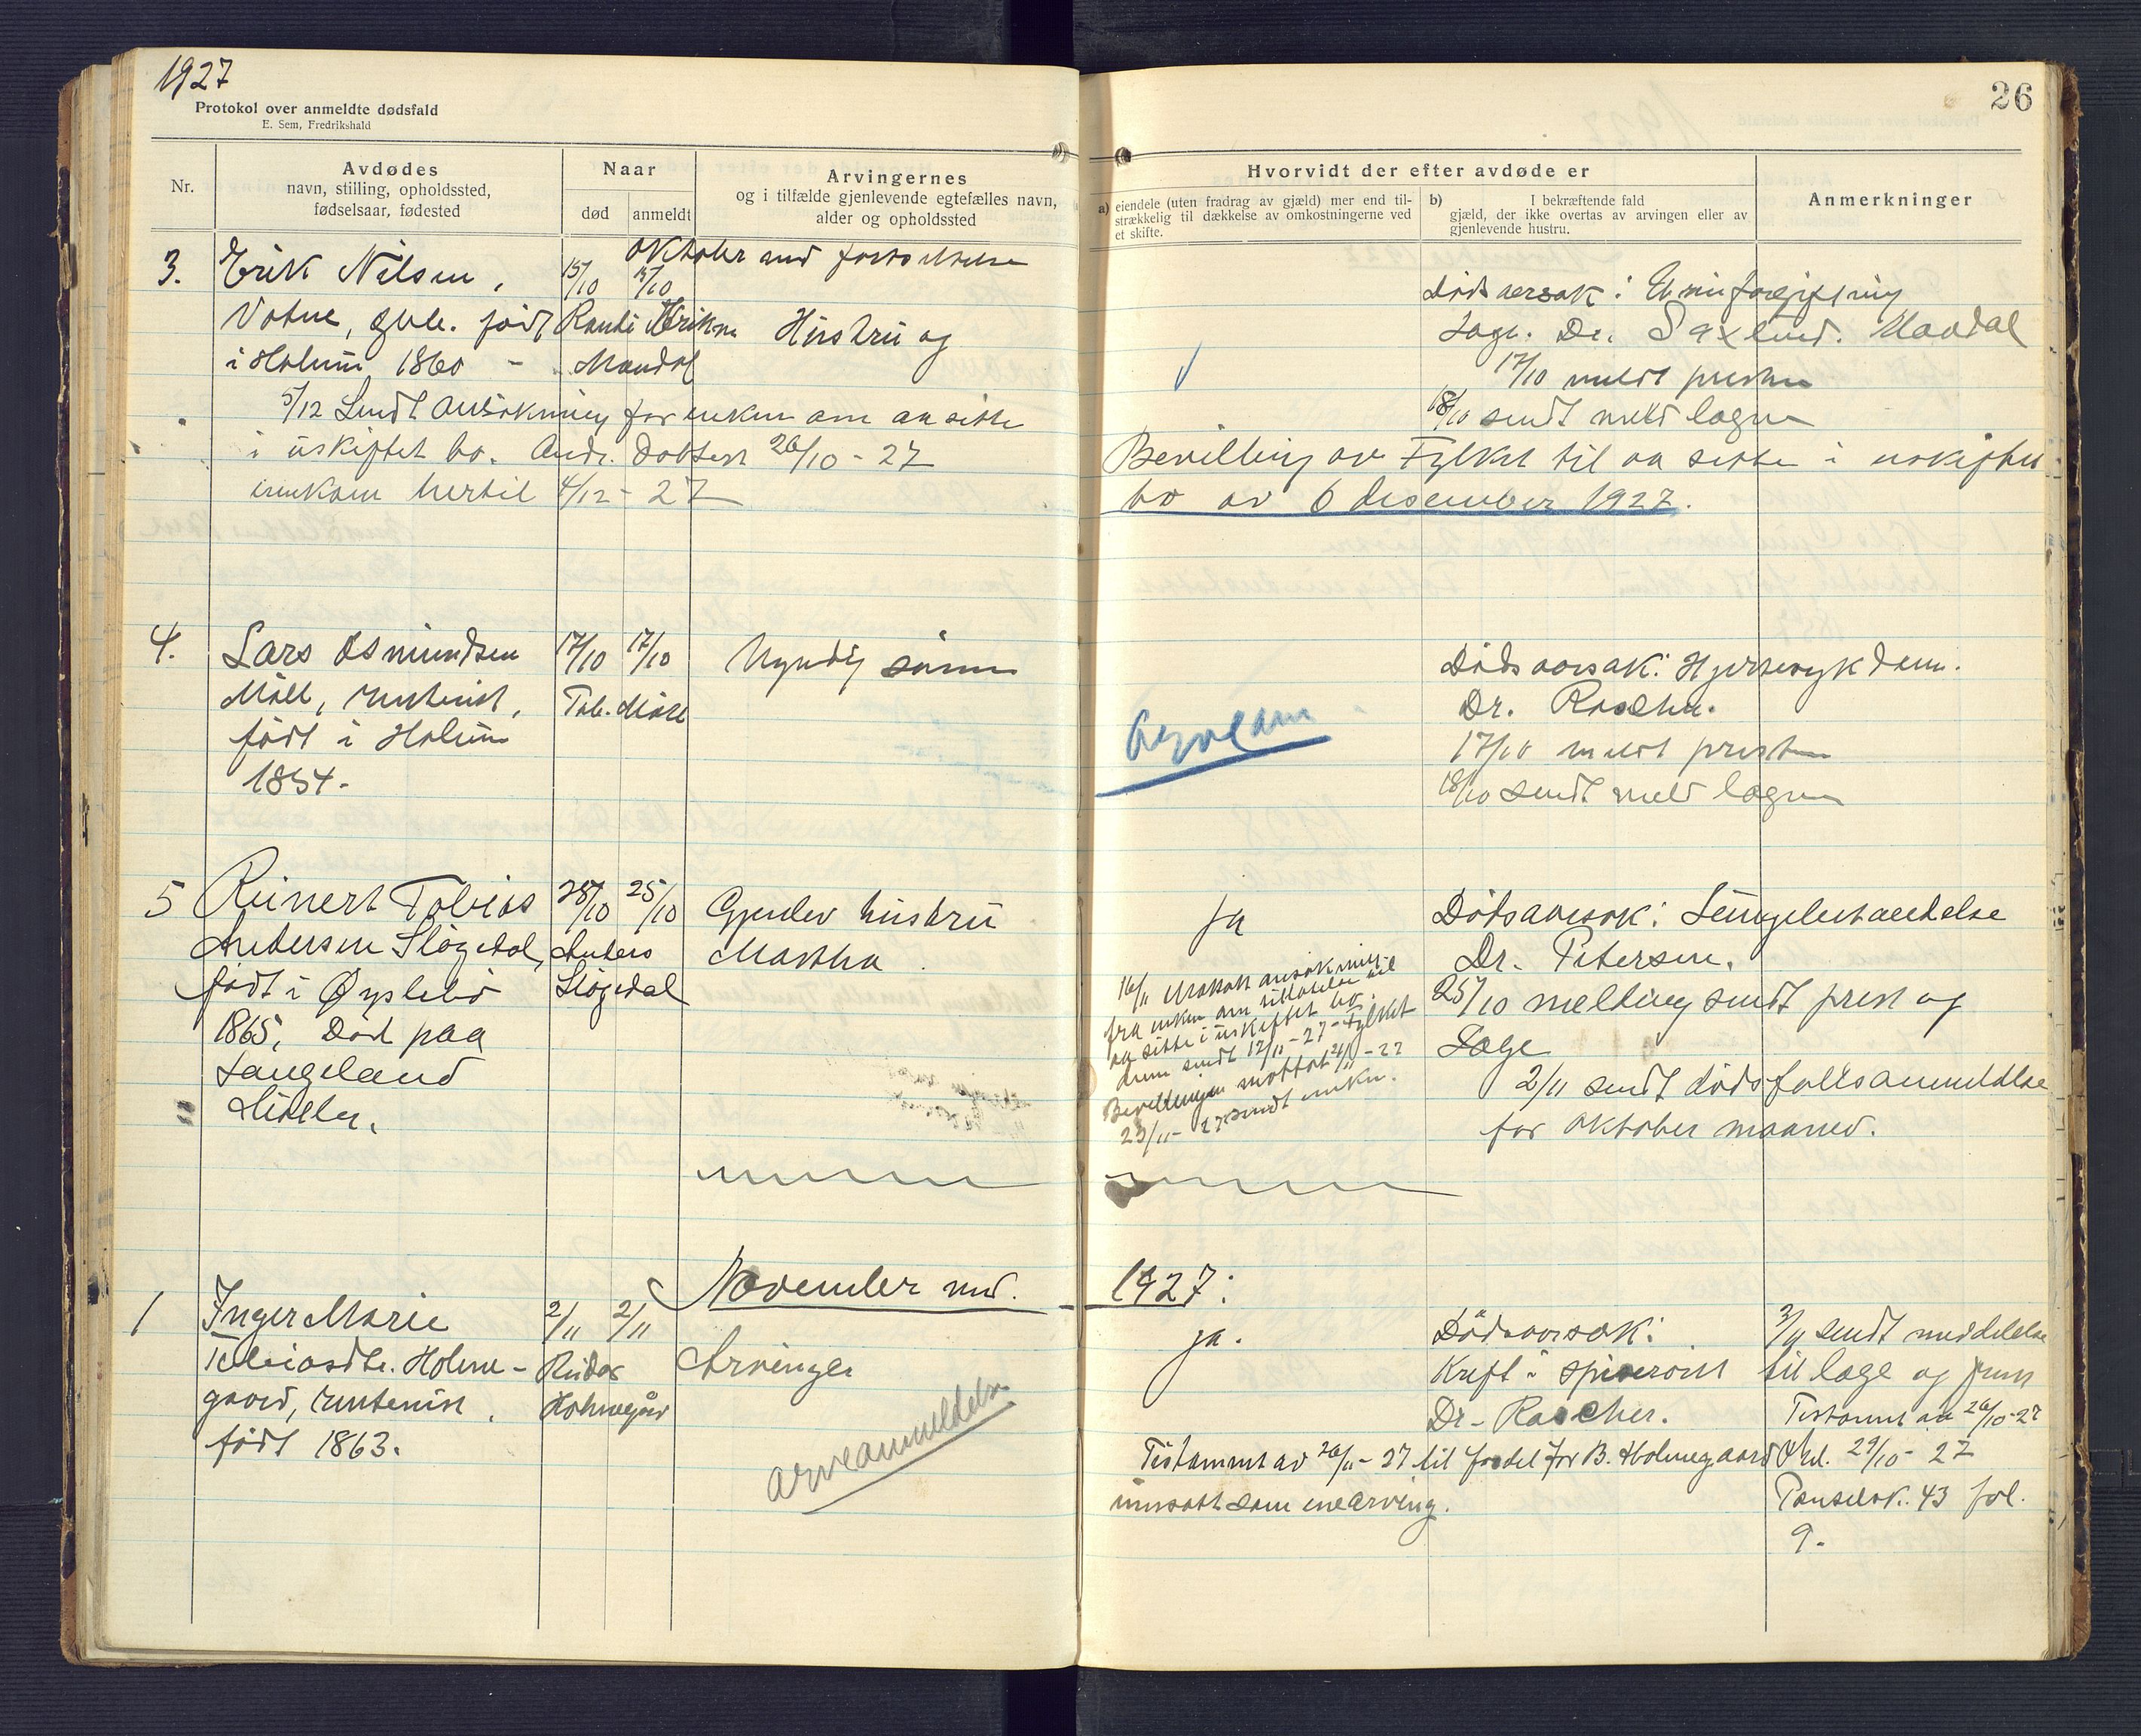 1927
Protokol over anmeldte dødsfald
E. Sem, Fredrikshald
26
Nr.
Avdødes
navn, stilling, opholdssted,
fødselsaar, fødested
Naar
død
anmeldt
Arvingernes
og i tilfælde gjenlevende egtefælles navn,
alder og opholdssted
Hvorvidt der efter avdøde er
a) eiendele (uten fradrag av gjæld) mer end til-
strækkelig til dækkelse av omkostningerne ved
et skifte.
b) I bekræftende fald
gjæld, der ikke overtas av arvingen eller av
gjenlevende hustru.
Anmerkninger
Oktober md fortsettelse
3. Erik Nilsen, 15/10 15/10
født Hustru og
i Holum 1860 - Mandal
5/12 Sendt ansökning for enken om aa sitte
i uskiftet bo. 26/10 - 27
innkom hertil 4/12 - 27
Dödsaarsak:
Læge. Dr. Mandal
17/10 meldt presten
18/10 sendt meld lægen
Bevilling av Fylket til aa sitte i uskiftet
bo av 6 desember 1927.
4. Lars Osmundsen 17/10 17/10 Myndig sönn
Møll, rentenist, Tob. Møll
født i Holum
1854.
Dödsaarsak: Hjertesykdom.
Dr. Rascher.
17/10 meldt presten
18/10 sendt meld lægen
5 Reinert Tobias 25/10 25/10 Gjenlev hustru
Andersen Slögedal, Anders Martha
født i Øyslebö Slögedal
1865, Död paa
Langeland
ja
16/11 Mottatt ansökning
fra enken om tillatelse til
aa sitte i uskiftet bo.
denn sendt 17/11-27 Fylket
Bevillingen mottat 21/11-27
23/11-27 sendt enken.
Dödsaarsak: Lungebetændelse
Dr. Petersen.
25/10 melding sendt prest og
Læge
2/11 sendt dödsfallsanmeldelse
for Oktober maaned.
November md. 1927:
1 Inger Marie 2/11 2/11
Tobiasdtr. Holme- Reidar Arvinger
gaard, rentenist, Holmegård
født 1863.
arveanmeldelse
ja.
Dödsaarsak:
Kreft i spiserört
Dr. Rascher.
3/11 sendt meddelelse
til læge og prest
Testament av 26/10-27
29/10 - 27
Panselok. 43 fol.
9.
Testament av 26/11-27 til fordel for B. Holmegaard
innsatt som enearving.